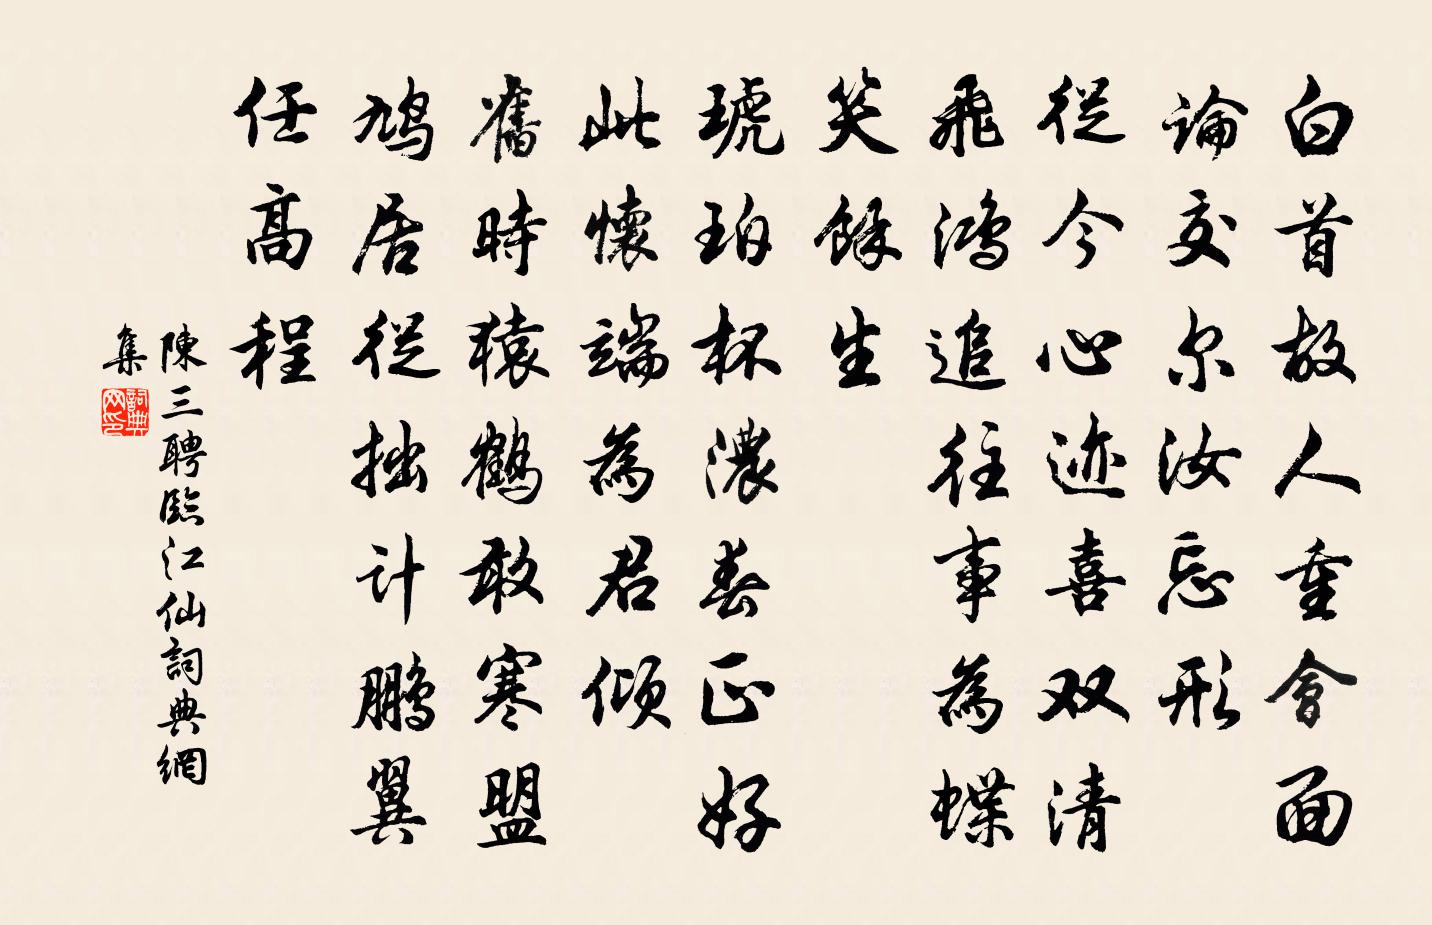 白首故人重會面
論交尔汝忘形
從今心迹喜双清
飛鴻追往事為蝶
笑餘生
琥珀杯濃春正好
此懷端為君傾
舊時猿鶴敢寒盟
鳩居從拙计鵬翼
任高程
陳三聘臨江仙詞典網
集
詞典
网印